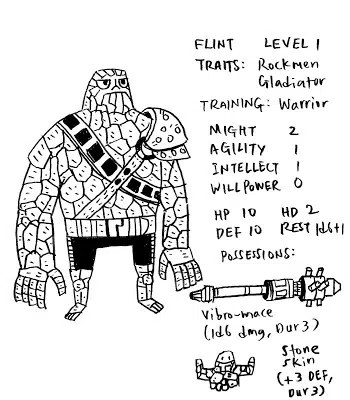 FLINT LEVEL 1
TRAITS: Rockmen
Gladiator
TRAINING: Warrior
MIGHT 2
AGILITY 1
INTELLECT 1
WILLPOWER 0
HP 10 HD 2
DEF 10 REST 1d6+1
POSSESSIONS:
Vibro-mace
(1d6 dmg, Dur 3)
Stone
skin
(+3 DEF,
Dur 3)